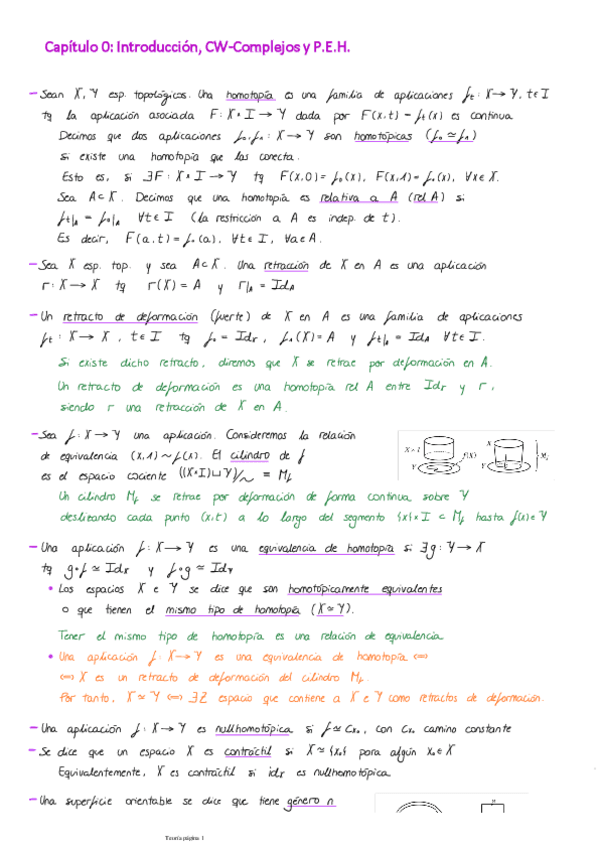 Capítulo 0: Introducción, CW-Complejos y P.E.H.
— Sean X, Y esp. topológicos. Una homotopía es una familia de aplicaciones fₜ: X → Y, t ∈ I
tq la aplicación asociada F: X × I → Y dada por F(x,t) = fₜ(x) es continua.
Decimos que dos aplicaciones f₀, f₁: X → Y son homotópicas (f₀ ≃ f₁)
si existe una homotopía que las conecta.
Esto es, si ∃F: X × I → Y tq F(x,0) = f₀(x), F(x,1) = f₁(x), ∀x ∈ X.
Sea A ⊂ X. Decimos que una homotopía es relativa a A (rel A) si
fₜ|A = f₀|A ∀t ∈ I (la restricción a A es indep. de t).
Es decir, F(a,t) = f₀(a), ∀t ∈ I, ∀a ∈ A.
— Sea X esp. top. y sea A ⊂ X. Una retracción de X en A es una aplicación
r: X → X tq r(X) = A y r|A = Id_A
— Un retracto de deformación (fuerte) de X en A es una familia de aplicaciones
fₜ: X → X, t ∈ I tq f₀ = Id_X, f₁(X) = A y fₜ|A = Id_A ∀t ∈ I.
Si existe dicho retracto, diremos que X se retrae por deformación en A.
Un retracto de deformación es una homotopía rel A entre Id_X y r,
siendo r una retracción de X en A.
— Sea f: X → Y una aplicación. Consideremos la relación
de equivalencia (x,1) ~ f(x). El cilindro de f
es el espacio cociente ((X×I) ⊔ Y)/~ = M_f
X × I
Y
f(X)
X
Y
M_f
Un cilindro M_f se retrae por deformación de forma continua sobre Y
deslizando cada punto (x,t) a lo largo del segmento {x} × I ⊂ M_f hasta f(x) ∈ Y
— Una aplicación f: X → Y es una equivalencia de homotopía si ∃g: Y → X
tq g∘f ≃ Id_X y f∘g ≃ Id_Y
• Los espacios X e Y se dice que son homotópicamente equivalentes
o que tienen el mismo tipo de homotopía (X ≃ Y).
Tener el mismo tipo de homotopía es una relación de equivalencia
• Una aplicación f: X → Y es una equivalencia de homotopía ⟺
⟺ X es un retracto de deformación del cilindro M_f.
Por tanto, X ≃ Y ⟺ ∃Z espacio que contiene a X e Y como retractos de deformación.
— Una aplicación f: X → Y es nullhomotópica si f ≃ C_x₀, con C_x₀ camino constante
— Se dice que un espacio X es contráctil si X ≃ {x₀} para algún x₀ ∈ X
Equivalentemente, X es contráctil si id_X es nullhomotópica.
— Una superficie orientable se dice que tiene género n
Teoría página 1